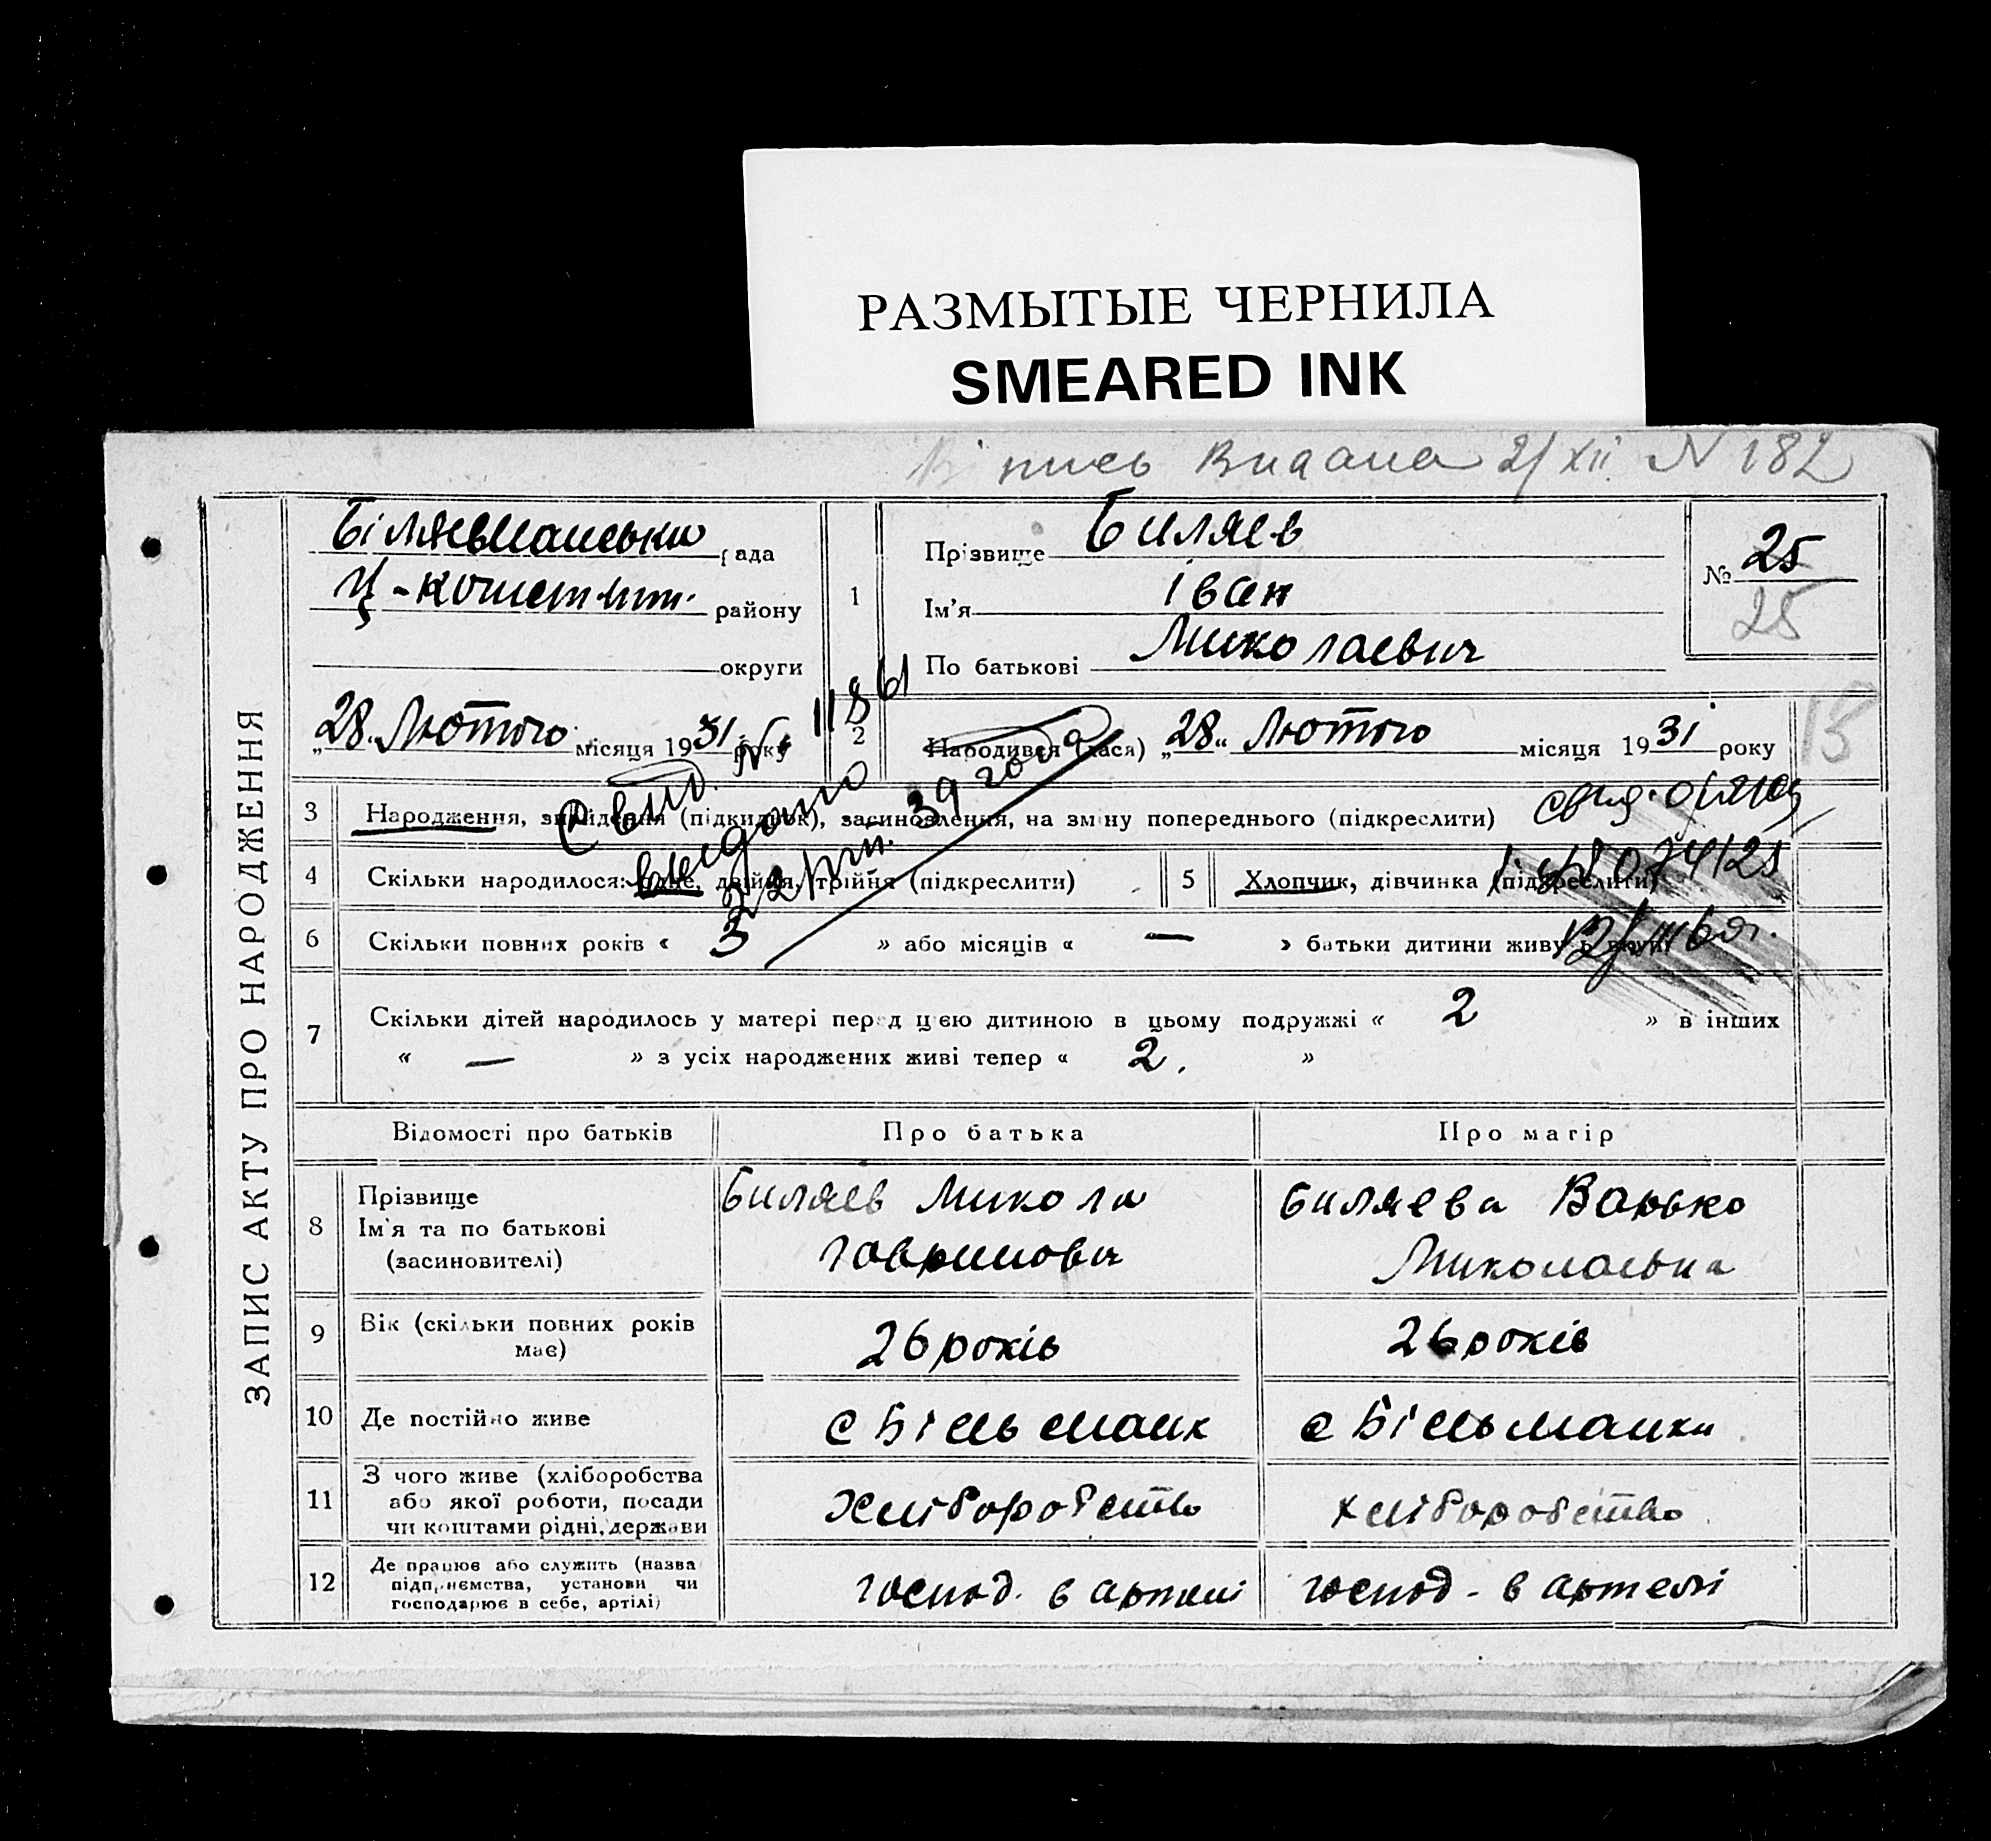 РАЗМЫТЫЕ ЧЕРНИЛА
SMEARED INK
пись Видана 2/XII N 182
ЗАПИС АКТУ ПРО НАРОДЖЕННЯ
рада
району
округи
1
Прізвище Биляев
Ім'я Іван
По батькові Миколаевич
№ 25
25
„28. Лютого місяця 1931 року
N 1186
2
Народився (лася) „28„ Лютого місяця 1931 року
15
Свид.
видано
39 года
3 Народження, знайдення (підкидьок), засиновлення, на зміну попереднього (підкреслити)
4 Скільки народилося: одне, двійня, трійня (підкреслити)
5 Хлопчик, дівчинка (підкреслити)
074125
6 Скільки повних років « 3 » або місяців « — » батьки дитини живуть вкупі
7 Скільки дітей народилось у матері перед цією дитиною в цьому подружжі « 2 » в інших
« — » з усіх народжених живі тепер « 2. »
Відомості про батьків
Про батька
Про матір
8 Прізвище
Ім'я та по батькові
(засиновителі)
Биляев Микола
Гаврилович
Биляева Варька
Миколаевна
9 Вік (скільки повних років
має)
26 років
26 років
10 Де постійно живе
с Більманк
с Більманки
11 З чого живе (хліборобства
або якої роботи, посади
чи коштами рідні, держави
Хліборобство
хліборобство
12 Де працює або служить (назва
підприємства, установи чи
господарює в себе, артілі)
господ. в артелі
господ - в артелі